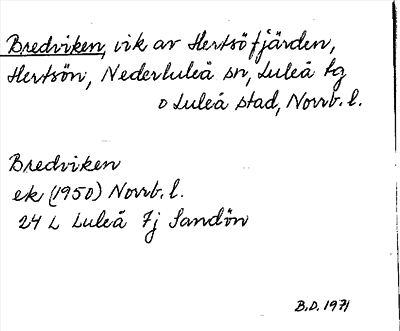 Bredviken, vik av Hertsöfjärden,
Hertsön, Nederluleå sn, Luleå tg
o Luleå stad, Norrb. l.
Bredviken
ek (1950) Norrb. l.
24 L Luleå 7j Sandön
B.D. 1971